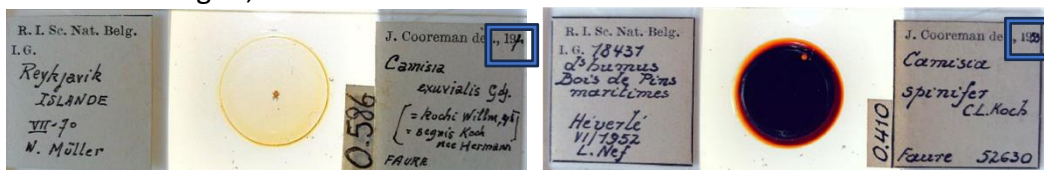 R. I. Sc. Nat. Belg.
I. G.
Reykjavik
ISLANDE
VII-70
W. Müller
0.586
J. Cooreman det., 19
Camisia
exuvialis Gdj.
[= Kochi Willm,
= segnis Koch
nec Hermann
FAURE
R. I. Sc. Nat. Belg.
I. G. 18437
ds humus
Bois de Pins
maritimes
Héverlé
VI/1952
L. Nef
0.410
J. Cooreman de , 1953
Camisia
spinifer
C.L. Koch
Faure 52630